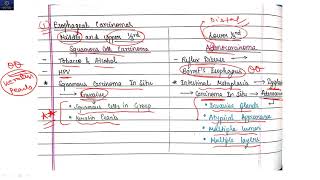 ① Esophageal Carcinoma
Distal
Middle and Upper 1/3rd
Lower 1/3rd
Squamous cell Carcinoma
Adenocarcinoma
- Tobacco & Alcohol
- Reflux Disease
- HPV
- Barret's Esophagus
keratin
pearls
* Squamous Carcinoma In Situ
* Intestinal Metaplasia →
→ Invasive
→ Carcinoma In Situ →
• Squamous cells in Group
• Invasive glands
• Keratin Pearls
• Atypical Appearance
• Multiple lumen
• Multiple layers